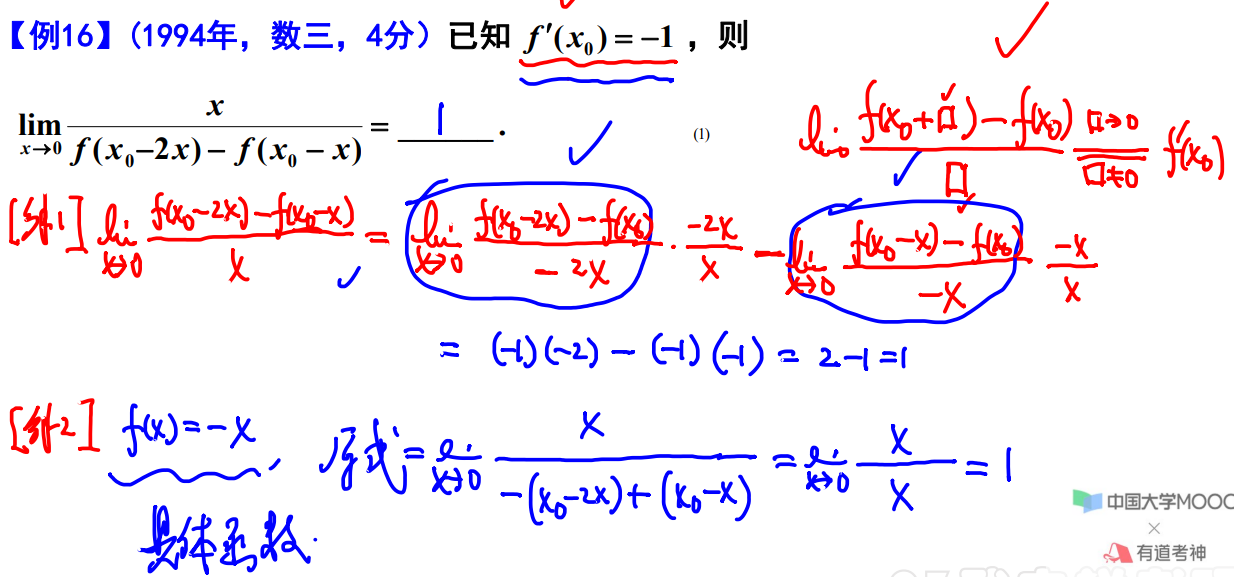 【例16】(1994年，数三，4分）已知 f′(x₀) = −1 ，则
lim x→0 x / f(x₀−2x) − f(x₀ − x) = 1 . (1)
lim f(x₀+□) − f(x₀) / □ □→0 □≠0 f′(x₀)
[解1] lim x→0 f(x₀−2x)−f(x₀−x) / x = lim x→0 f(x₀−2x)−f(x₀) / −2x · −2x / x − lim x→0 f(x₀−x)−f(x₀) / −x −x / x
= (−1)(−2) − (−1)(−1) = 2−1 = 1
[解2] f(x) = −x , 原式 = lim x→0 x / −(x₀−2x)+(x₀−x) = lim x→0 x / x = 1
具体函数.
中国大学MOOC
×
有道考神